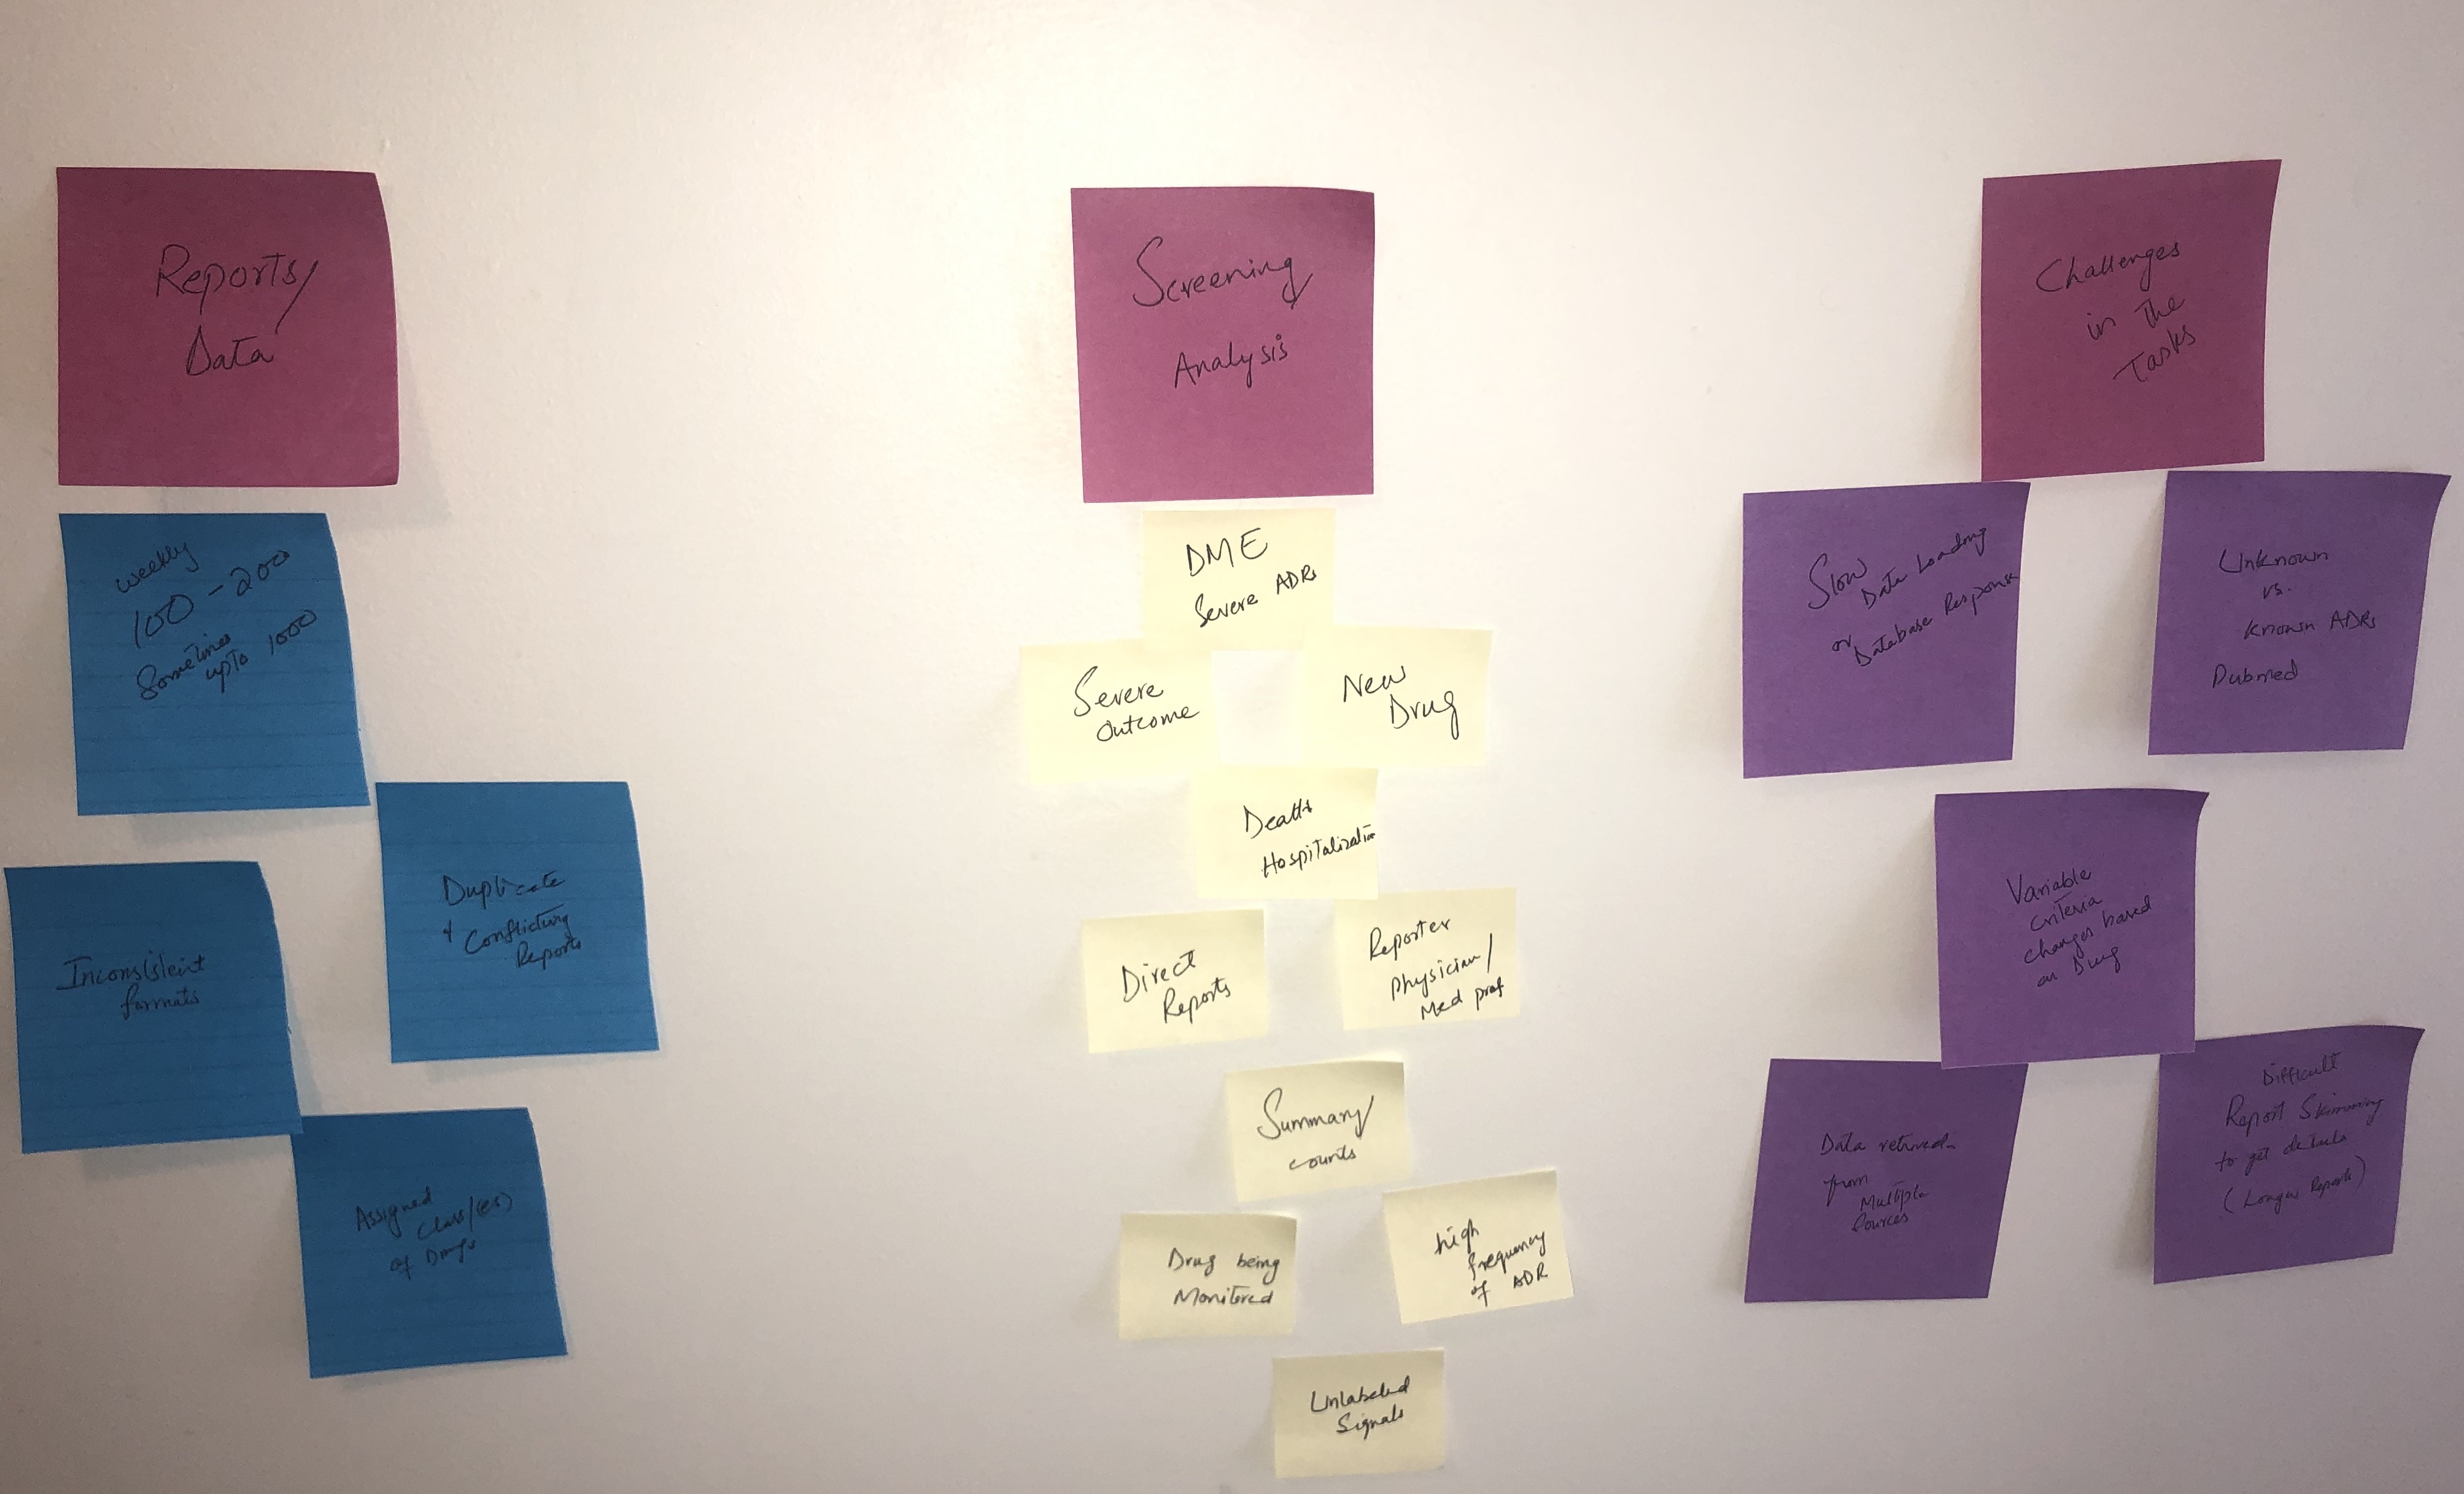 Reports/
Data
weekly
100 - 200
Sometimes
upto 1000
Duplicate
& Conflicting
Reports
Inconsistent
formats
Assigned
Class/(es)
of Drugs
Screening
Analysis
DME
Severe ADRs
Severe
Outcome
New
Drug
Death
Hospitalization
Direct
Reports
Reporter
Physician/
Med prof
Summary/
counts
Drug being
Monitored
high
frequency
of ADR
Unlabeled
Signals
Challenges
in the
Tasks
Slow
Data Loading
or
Database Response
Unknown
vs.
Known ADRs
Pubmed
Variable
criteria
changes based
on Drug
Data retrieved
from
Multiple
Sources
Difficult
Report Skimming
to get details
(Longer Reports)